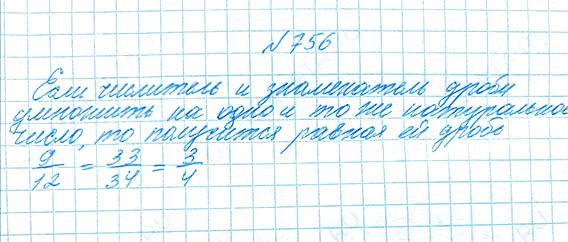 №756
Если числитель и знаменатель дроби
умножить на одно и то же натуральное
число, то получится равная ей дробь
9/12 = 33/34 = 3/4